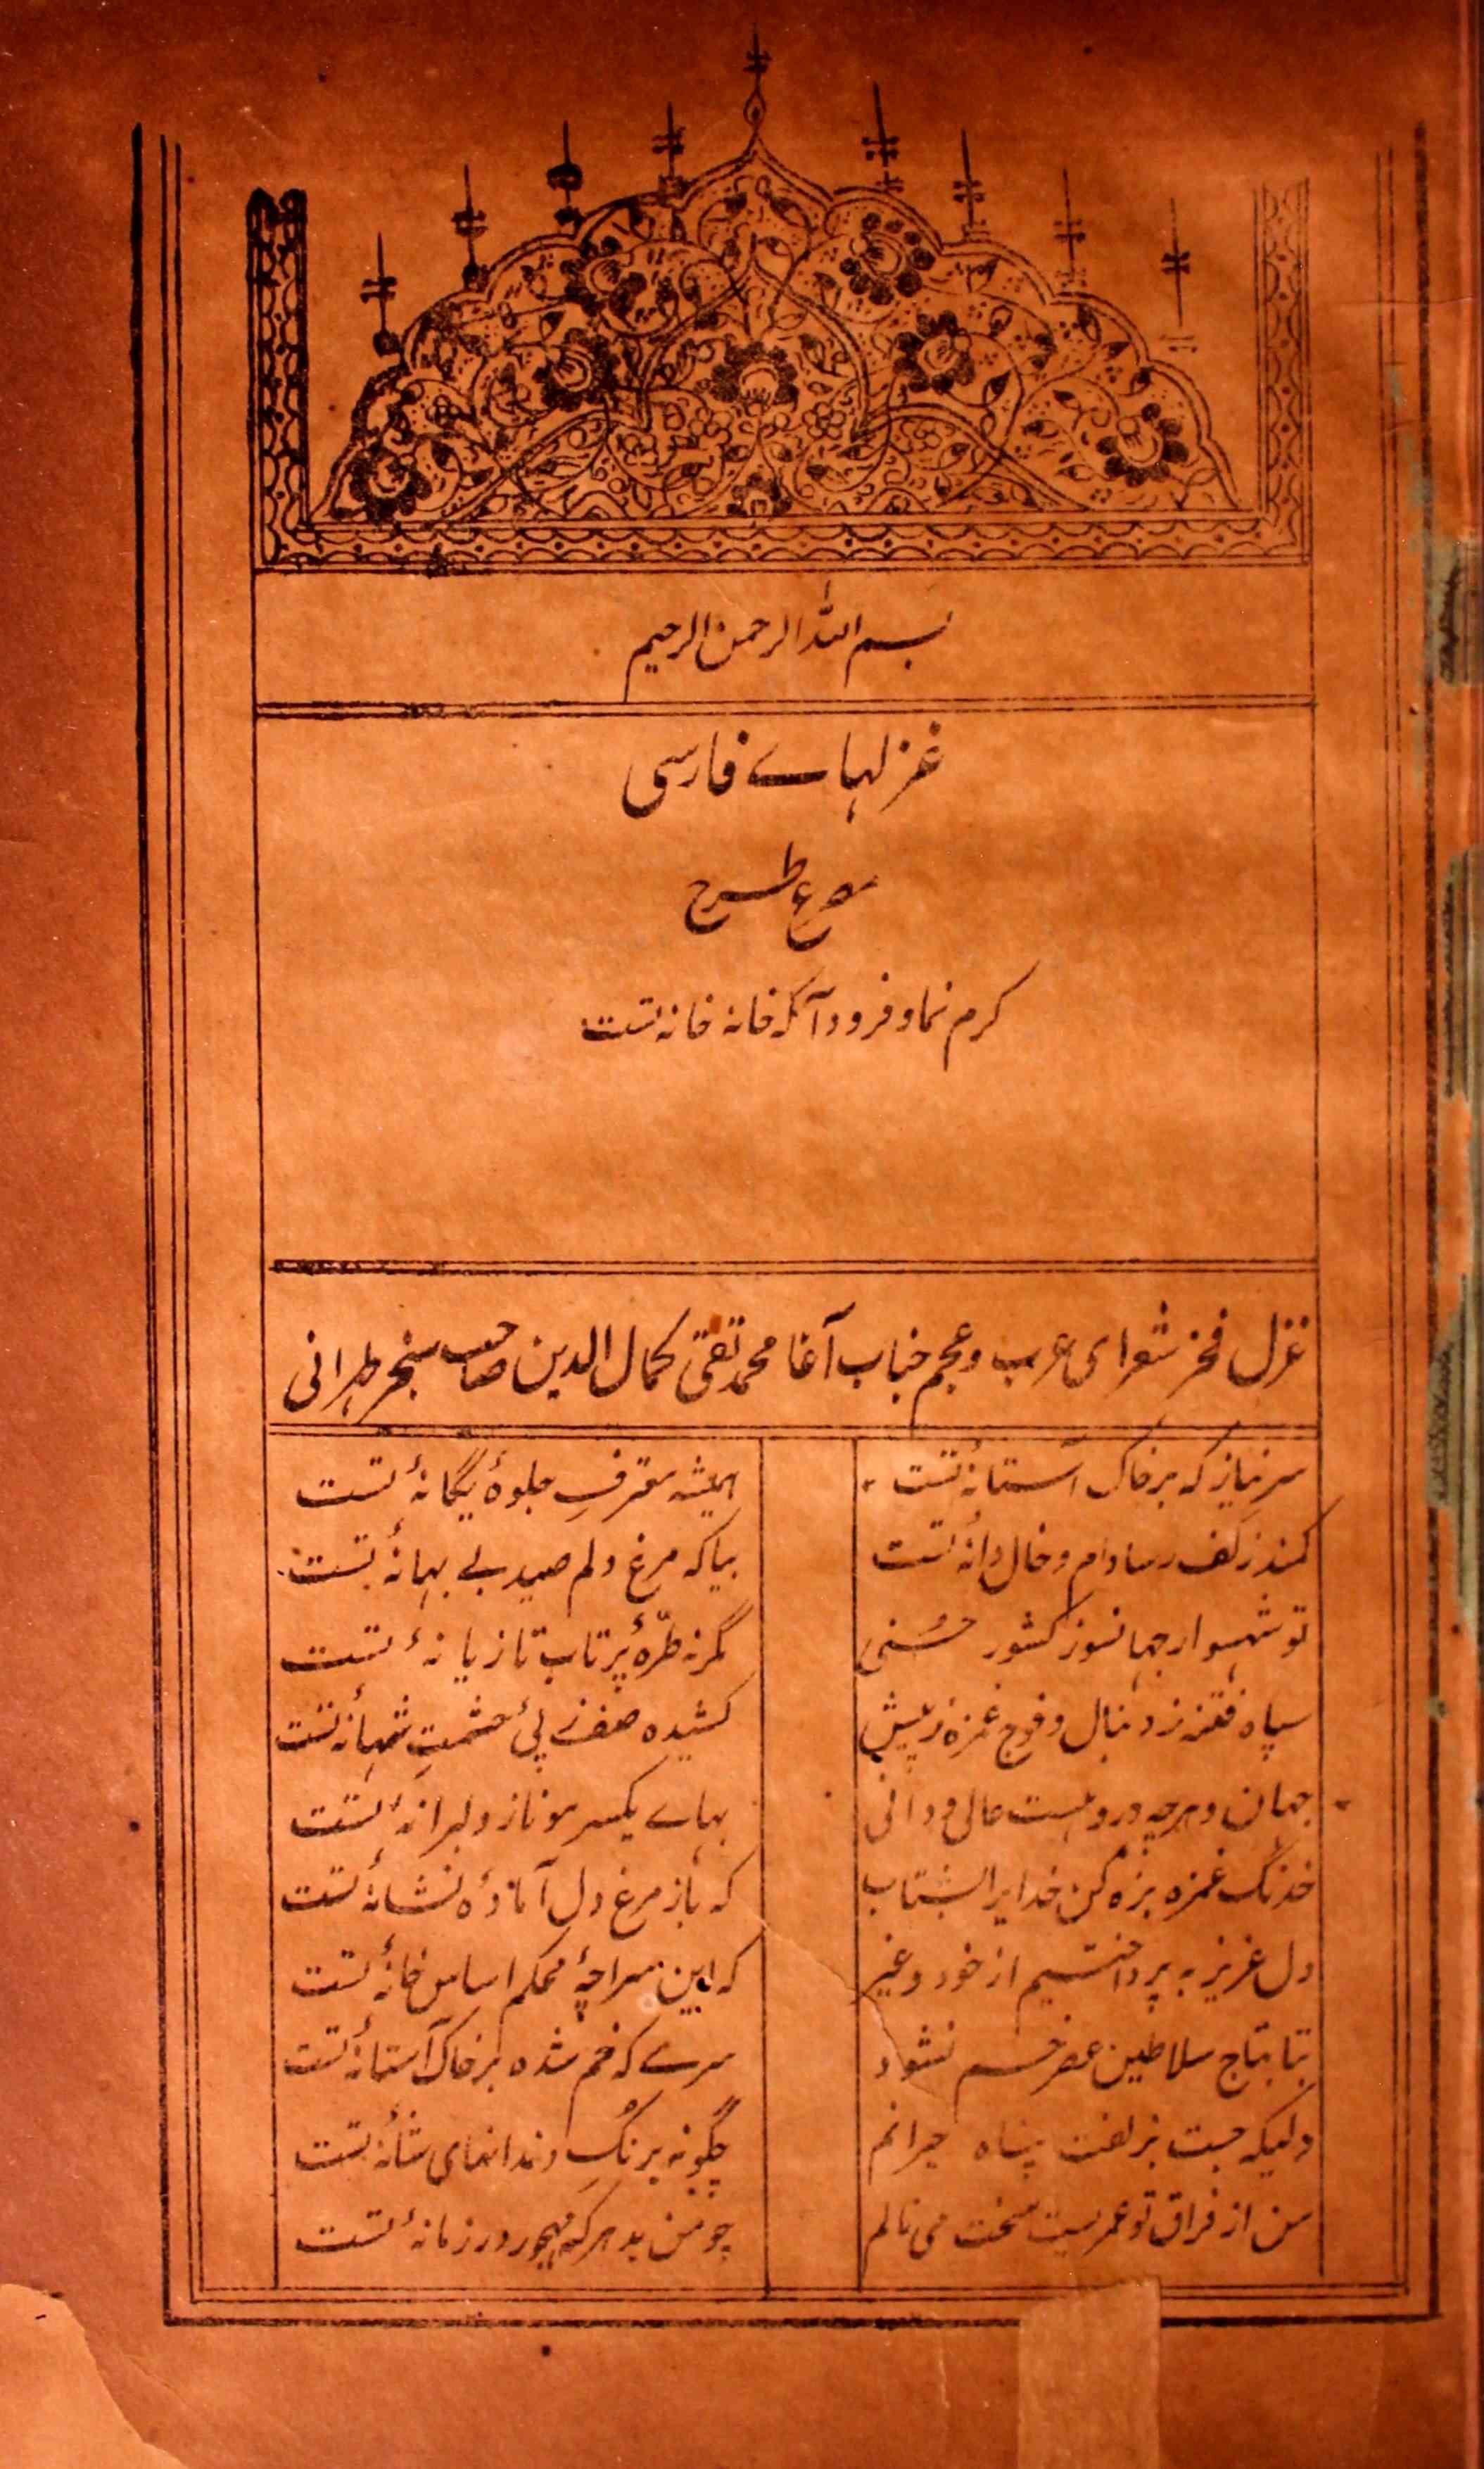 بسم الله الرحمن الرحیم
غزلہاے فارسی
مصرع طرح
کرم نما و فرود آ کہ خانہ خانۂ تست
غزل فخر شعرای عرب و عجم جناب آغا محمد تقی کمال الدین صاحب سنجر طہرانی
سر نیاز کہ بر خاک آستانۂ تست
ہمیشہ معترفِ جلوۂ یگانۂ تست
کمند زلف رسا دام و خال دانۂ تست
بیا کہ مرغ دلم صید بے بہانۂ تست
تو شہسوار جہانسوز کشور حسنی
مگر نہ طرّۂ پرتاب تازیانۂ تست
سپاہ فتنہ ز دنبال و فوج غمزہ ز پیش
کشیدہ صف ز پئ حشمتِ شہانۂ تست
جہان و ہرچہ درو ہست حالی و دانی
بہاے یکسر مو ناز دلبرانۂ تست
خدنگ غمزہ بزہ کن خدایرا بشتاب
کہ باز مرغ دل آمادۂ نشانۂ تست
دل عزیز بہ پرداختیم از خود و غیر
کہ این سراچۂ محکم اساس خانۂ تست
بتا بتاج سلاطین عصر خم نشود
سرے کہ خم شدہ بر خاک آستانۂ تست
دلیکہ جست بزلفت پناہ حیرانم
چگونہ برنگ دندانہای شانۂ تست
من از فراق تو عمریست سخت می نالم
چو من بدہر کہ مہجور در زمانۂ تست